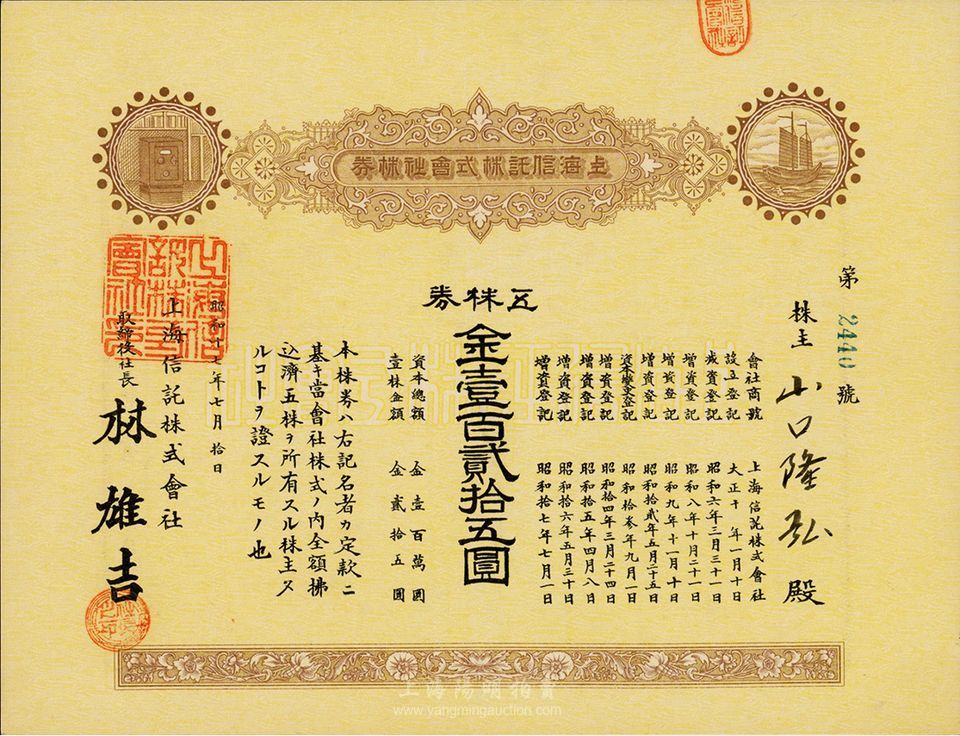 上海信託株式會社株券
第2440號
株主 山口隆弘殿
會社商號 上海信託株式會社
設立登記 大正十年一月十日
減資登記 昭和六年三月三十一日
增資登記 昭和八年十月二十一日
增資登記 昭和九年十一月十日
增資登記 昭和拾貳年五月二十五日
資本變更登記 昭和拾參年九月一日
增資登記 昭和拾四年三月二十四日
增資登記 昭和拾五年四月八日
增資登記 昭和拾六年五月三十日
增資登記 昭和拾七年七月一日
五株券
金壹百貳拾五圓
資本總額 金壹百萬圓
壹株金額 金貳拾五圓
本株券ハ右記名者カ定款ニ
基キ當會社株式ノ內全額拂
込濟五株ヲ所有スル株主タ
ルコトヲ證スルモノ也
昭和十七年七月拾日
上海信託株式會社
取締役社長 林雄吉
上海信託株式會社印
上海陽明拍賣
www.yangmingauction.com